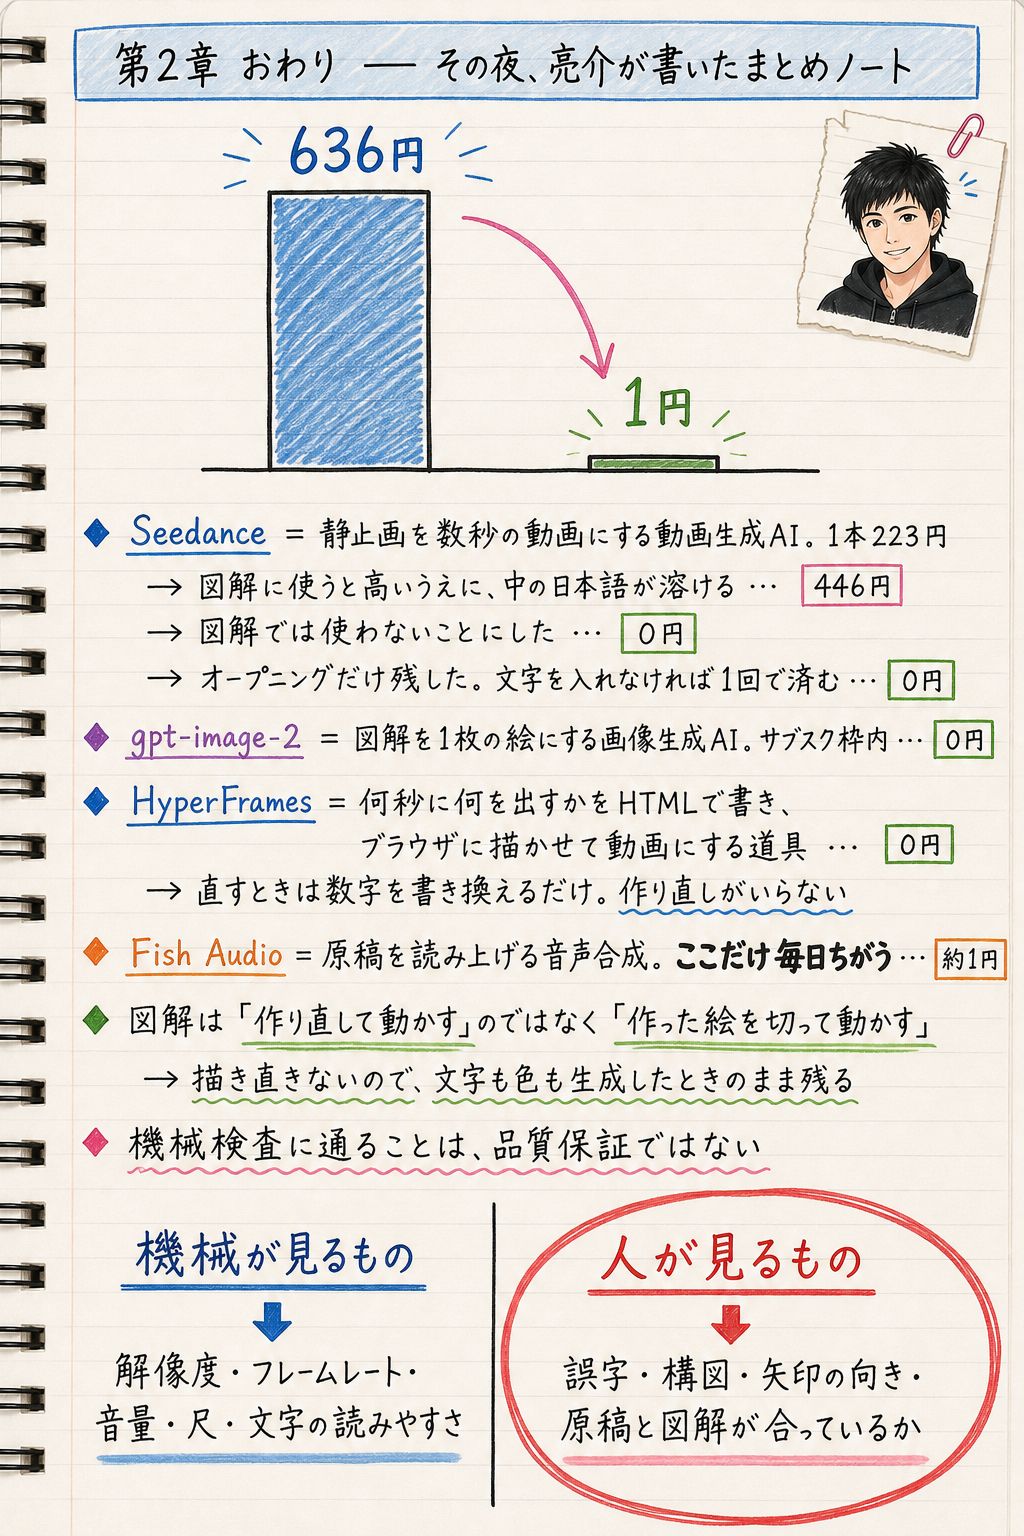 第2章 おわり ― その夜、亮介が書いたまとめノート
636円
1円
◆ Seedance = 静止画を数秒の動画にする動画生成AI。1本223円
→ 図解に使うと高いうえに、中の日本語が溶ける … 446円
→ 図解では使わないことにした … 0円
→ オープニングだけ残した。文字を入れなければ1回で済む … 0円
◆ gpt-image-2 = 図解を1枚の絵にする画像生成AI。サブスク枠内 … 0円
◆ HyperFrames = 何秒に何を出すかをHTMLで書き、
ブラウザに描かせて動画にする道具 … 0円
→ 直すときは数字を書き換えるだけ。作り直しがいらない
◆ Fish Audio = 原稿を読み上げる音声合成。ここだけ毎日ちがう … 約1円
◆ 図解は「作り直して動かす」のではなく「作った絵を切って動かす」
→ 描き直さないので、文字も色も生成したときのまま残る
◆ 機械検査に通ることは、品質保証ではない
機械が見るもの
解像度・フレームレート・
音量・尺・文字の読みやすさ
人が見るもの
誤字・構図・矢印の向き・
原稿と図解が合っているか